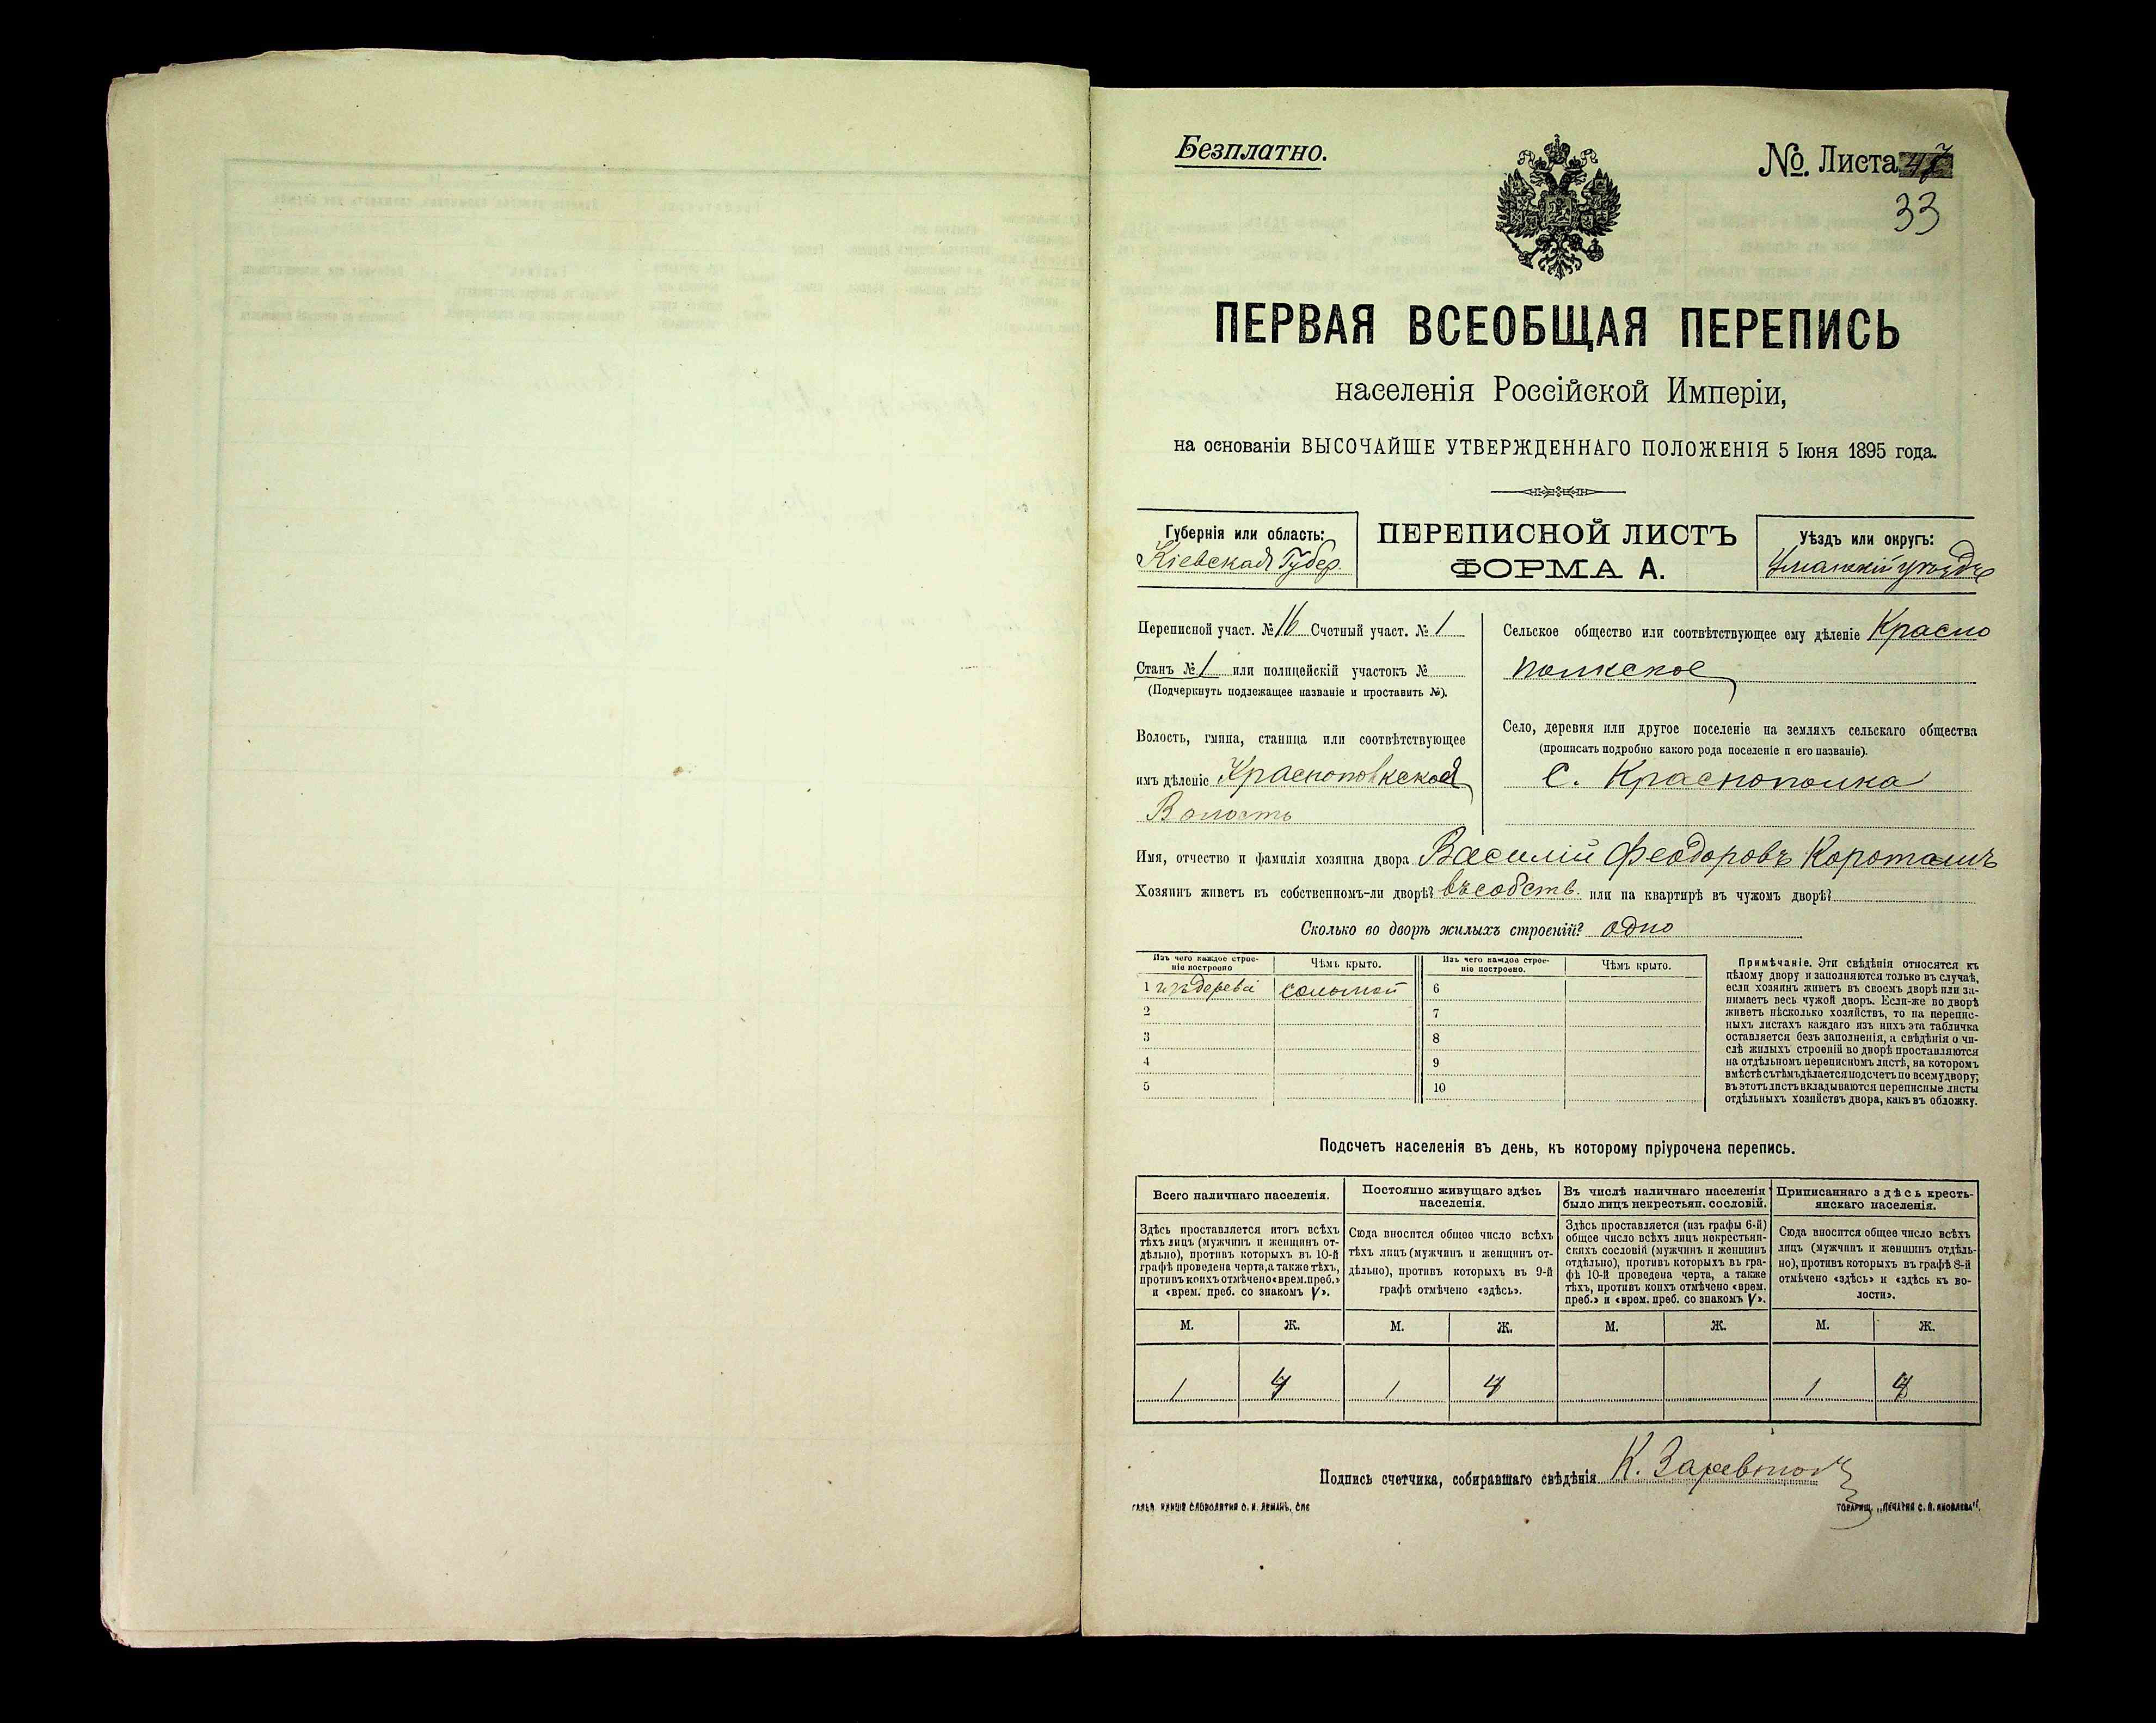 Безплатно.
№. Листа 47
33
ПЕРВАЯ ВСЕОБЩАЯ ПЕРЕПИСЬ
населенія Россійской Имперіи,
на основаніи ВЫСОЧАЙШЕ УТВЕРЖДЕННАГО ПОЛОЖЕНІЯ 5 Іюня 1895 года.
Губернія или область:
Кіевская Губер.
ПЕРЕПИСНОЙ ЛИСТЪ
ФОРМА А.
Уѣздъ или округъ:
Уманскій уѣздъ
Переписной участ. № 16 Счетный участ. № 1
Станъ № 1 или полицейскій участокъ №
(Подчеркнуть подлежащее названіе и проставить №).
Волость, гмина, станица или соотвѣтствующее
имъ дѣленіе Краснополкская
Волость
Сельское общество или соотвѣтствующее ему дѣленіе Красно
полкское
Село, деревня или другое поселеніе на земляхъ сельскаго общества
(прописать подробно какого рода поселеніе и его названіе).
С. Краснополка
Имя, отчество и фамилія хозяина двора Василій Феодоровъ
Хозяинъ живетъ въ собственномъ-ли дворѣ? въ собств. или на квартирѣ въ чужомъ дворѣ?
Сколько во дворѣ жилыхъ строеній? одно
Изъ чего каждое строе-
ніе построено
Чѣмъ крыто.
Изъ чего каждое строе-
ніе построено.
Чѣмъ крыто.
1 изъ дерева соломой 6
2 7
3 8
4 9
5 10
Примѣчаніе. Эти свѣдѣнія относятся къ
цѣлому двору и заполняются только въ случаѣ,
если хозяинъ живетъ въ своемъ дворѣ или за-
нимаетъ весь чужой дворъ. Если-же во дворѣ
живетъ нѣсколько хозяйствъ, то на перепис-
ныхъ листахъ каждаго изъ нихъ эта табличка
оставляется безъ заполненія, а свѣдѣнія о чи-
слѣ жилыхъ строеній во дворѣ проставляются
на отдѣльномъ переписномъ листѣ, на которомъ
вмѣстѣ съ тѣмъ дѣлается подсчетъ по всему двору;
въ этотъ листъ вкладываются переписные листы
отдѣльныхъ хозяйствъ двора, какъ въ обложку.
Подсчетъ населенія въ день, къ которому пріурочена перепись.
Всего наличнаго населенія.
Здѣсь проставляется итогъ всѣхъ
тѣхъ лицъ (мужчинъ и женщинъ от-
дѣльно), противъ которыхъ въ 10-й
графѣ проведена черта, а также тѣхъ,
противъ коихъ отмѣчено «врем. преб.»
и «врем. преб. со знакомъ V».
Постоянно живущаго здѣсь
населенія.
Сюда вносится общее число всѣхъ
тѣхъ лицъ (мужчинъ и женщинъ от-
дѣльно), противъ которыхъ въ 9-й
графѣ отмѣчено «здѣсь».
Въ числѣ наличнаго населенія
было лицъ некрестьян. сословій.
Здѣсь проставляется (изъ графы 6-й)
общее число всѣхъ лицъ некрестьян-
скихъ сословій (мужчинъ и женщинъ
отдѣльно), противъ которыхъ въ гра-
фѣ 10-й проведена черта, а также
тѣхъ, противъ коихъ отмѣчено «врем.
преб.» и «врем. преб. со знакомъ V».
Приписаннаго здѣсь кресть-
янскаго населенія.
Сюда вносится общее число всѣхъ
лицъ (мужчинъ и женщинъ отдѣль-
но), противъ которыхъ въ графѣ 8-й
отмѣчено «здѣсь» и «здѣсь къ во-
лости».
М. Ж. М. Ж. М. Ж. М. Ж.
1 4 1 4 1
Подпись счетчика, собиравшаго свѣдѣнія К.
ГАЛЬВ. КЛИШЕ СЛОВОЛИТНИ О. И. ЛЕМАНЪ, СПБ
ТОВАРИЩ. „ПЕЧАТНЯ С. П. ЯКОВЛЕВА".